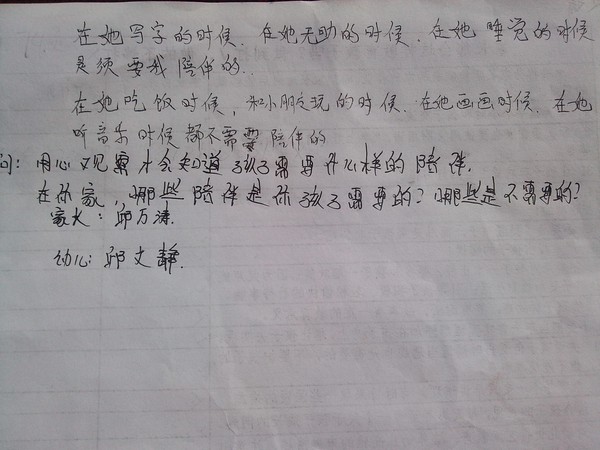 在她写字的时候．在她无助的时候．在她睡觉的时候
是须要我陪伴的．
在她吃饭时候，和小朋友玩的时候．在她画画时候．在她
听音乐时候都不需要陪伴的
问：用心观察才会知道孩子需要什么样的陪伴．
在你家，哪些陪伴是你孩子需要的？哪些是不需要的？
家长：邱万涛
幼儿：邱文静．